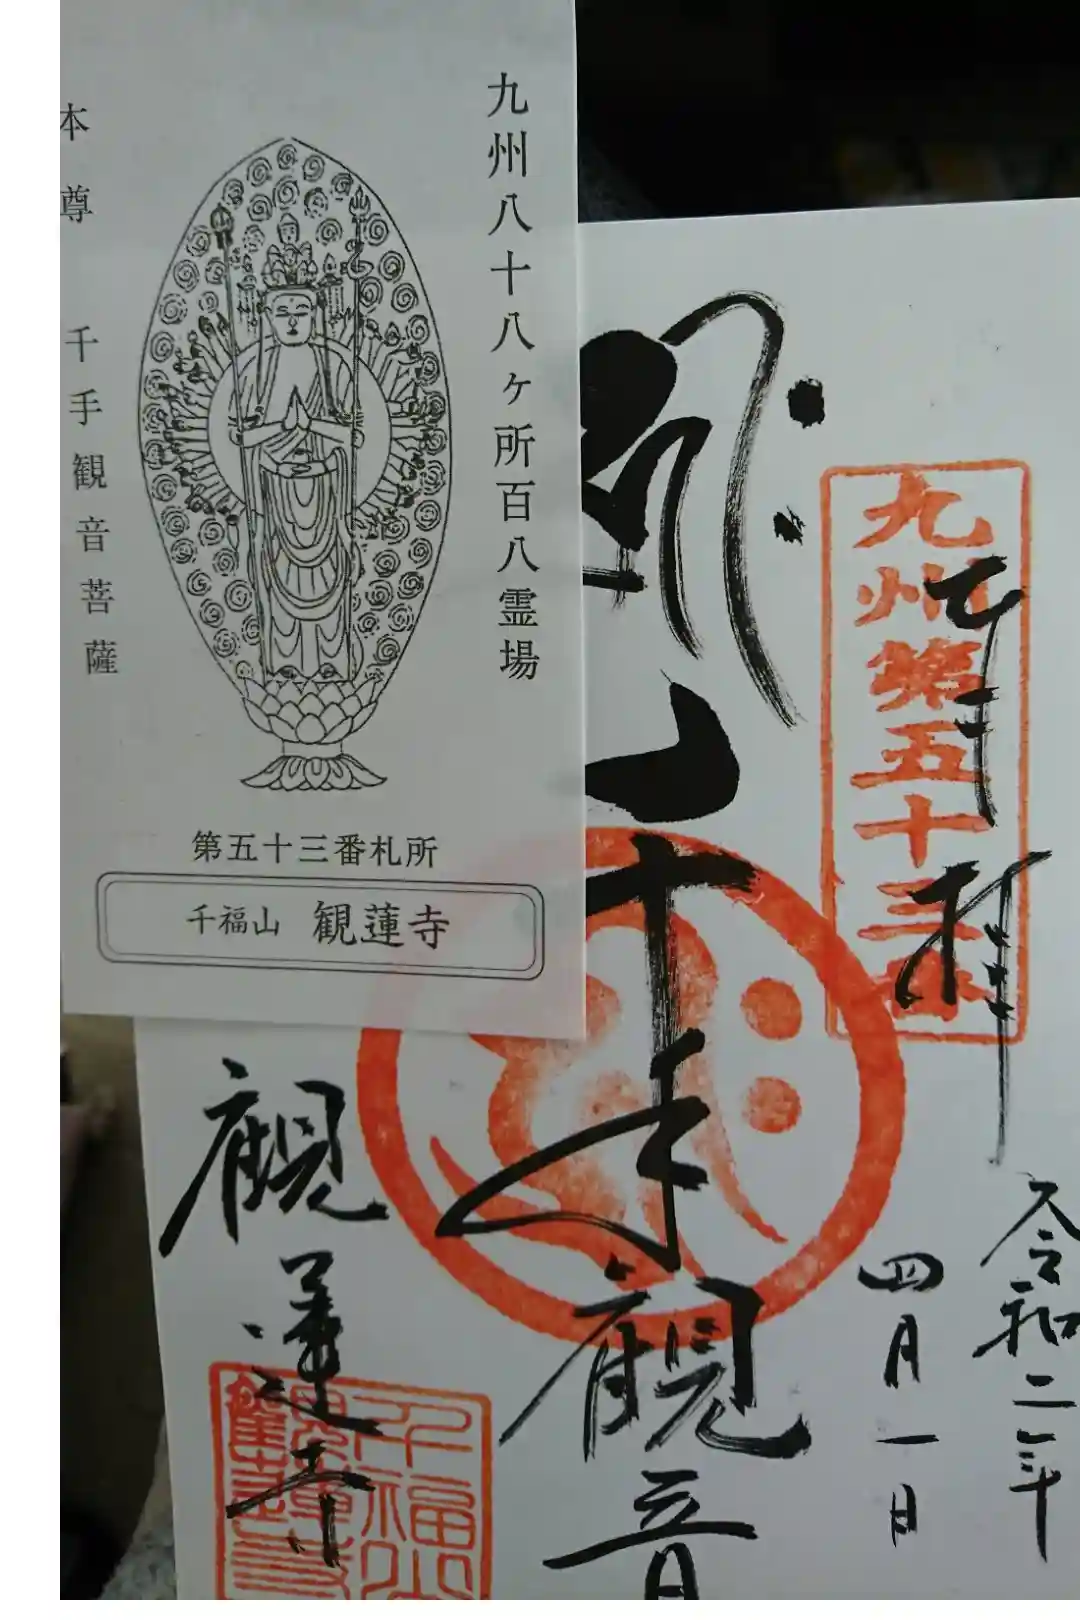 九州八十八ヶ所百八霊場
本尊 千手観音菩薩
第五十三番札所
千福山 観蓮寺
九州第五十三番
奉拝
令和二年
四月一日
千手観音
観蓮寺
千福山
観蓮寺